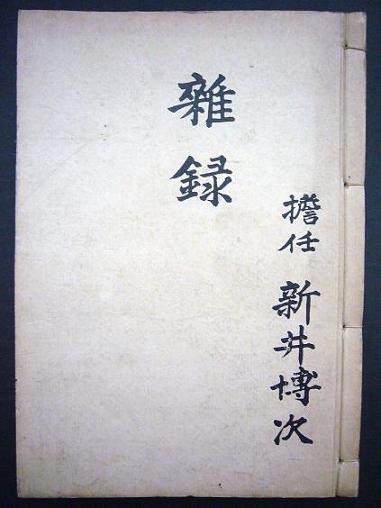 擔任 新井博次
雜録